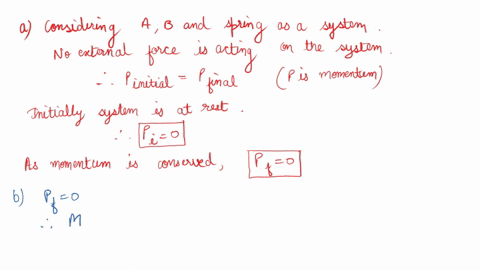 a) Considering A, B and spring as a system.
No external force is acting on the system.
∴ P initial = P final (P is momentum)
Initially system is at rest.
∴ P_i = 0
As momentum is conserved, P_f = 0
b) P_f = 0
∴ M